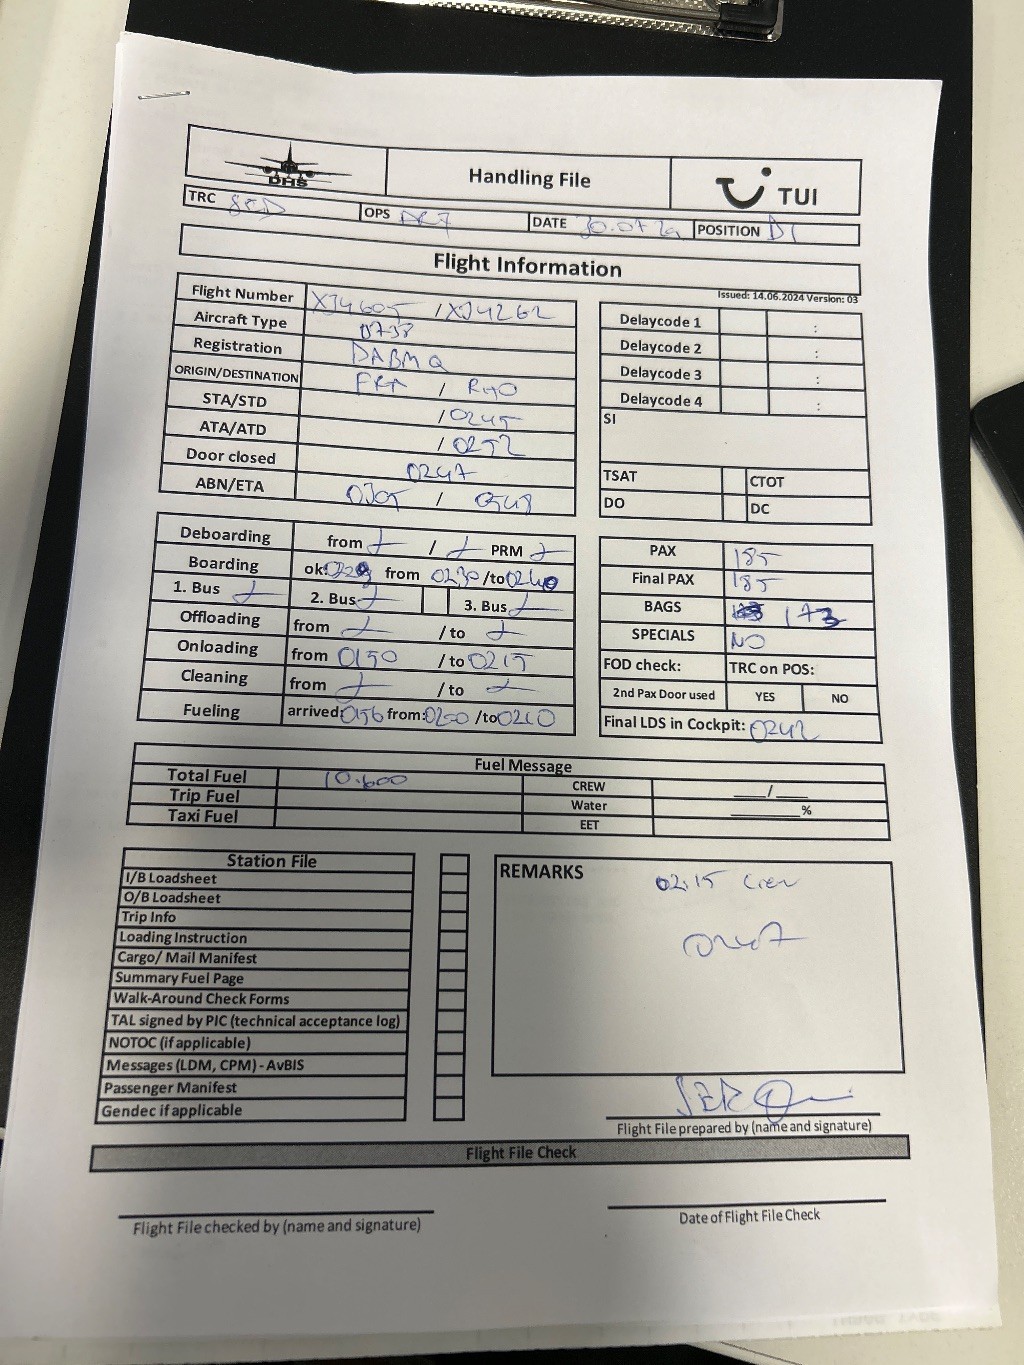 DHS
Handling File
TUI
TRC OPS DATE POSITION D1
Flight Information
Issued: 14.06.2024 Version: 03
Flight Number / XJ4262
Aircraft Type
Registration DABMQ
ORIGIN/DESTINATION FRA / RHO
STA/STD / 0245
ATA/ATD / 0252
Door closed 0247
ABN/ETA /
Delaycode 1 :
Delaycode 2 :
Delaycode 3 :
Delaycode 4 :
SI
TSAT CTOT
DO DC
Deboarding from / PRM
Boarding ok: from 0230 /to 0240
1. Bus 2. Bus 3. Bus
Offloading from / to
Onloading from 0150 / to 0215
Cleaning from / to
Fueling arrived: 0156 from: 0200 /to 0210
PAX 185
Final PAX 185
BAGS 173
SPECIALS NO
FOD check: TRC on POS:
2nd Pax Door used YES NO
Final LDS in Cockpit: 0242
Fuel Message
Total Fuel 10.600 CREW /
Trip Fuel Water %
Taxi Fuel EET
Station File
I/B Loadsheet
O/B Loadsheet
Trip Info
Loading Instruction
Cargo/ Mail Manifest
Summary Fuel Page
Walk-Around Check Forms
TAL signed by PIC (technical acceptance log)
NOTOC (if applicable)
Messages (LDM, CPM) - AvBIS
Passenger Manifest
Gendec if applicable
REMARKS 02:15 Crew
0247
Flight File prepared by (name and signature)
Flight File Check
Flight File checked by (name and signature)
Date of Flight File Check